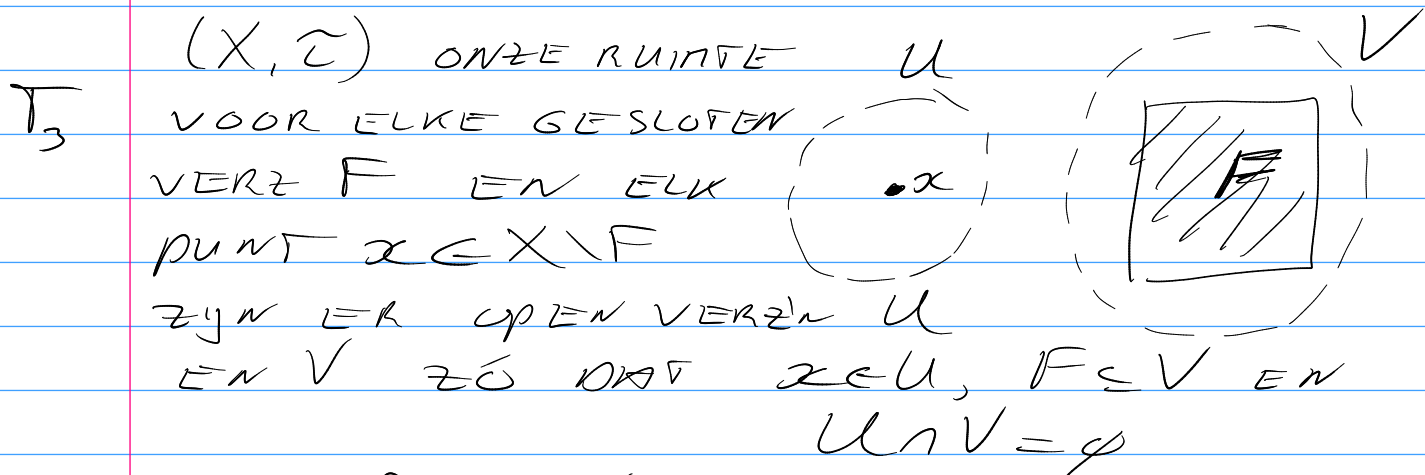 (X, τ) ONZE RUIMTE
T₃ VOOR ELKE GESLOTEN
VERZ F EN ELK
PUNT x ∈ X \ F
ZIJN ER OPEN VERZ'N U
EN V ZÓ DAT x ∈ U, F ⊆ V EN
U ∩ V = ∅
U
V
x
F